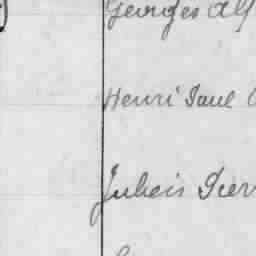 Georges Alf
Henri Paul
Julien Pierr